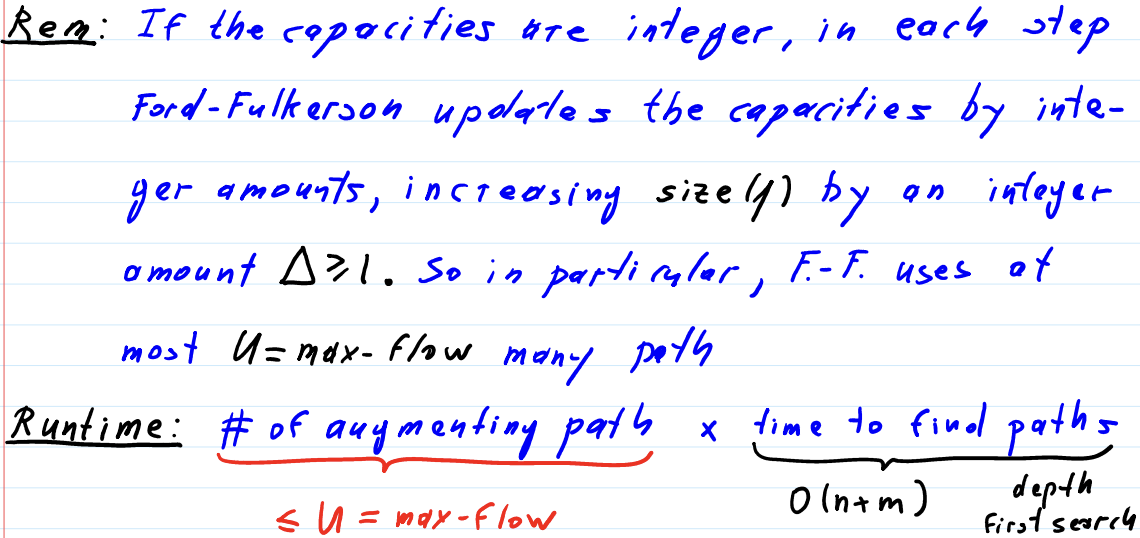 Rem: If the capacities are integer, in each step
Ford-Fulkerson updates the capacities by inte-
ger amounts, increasing size(f) by an integer
amount Δ⩾1. So in particular, F.-F. uses at
most U = max-flow many path
Runtime: # of augmenting path x time to find paths
≤ U = max-flow O(n+m) depth
first search